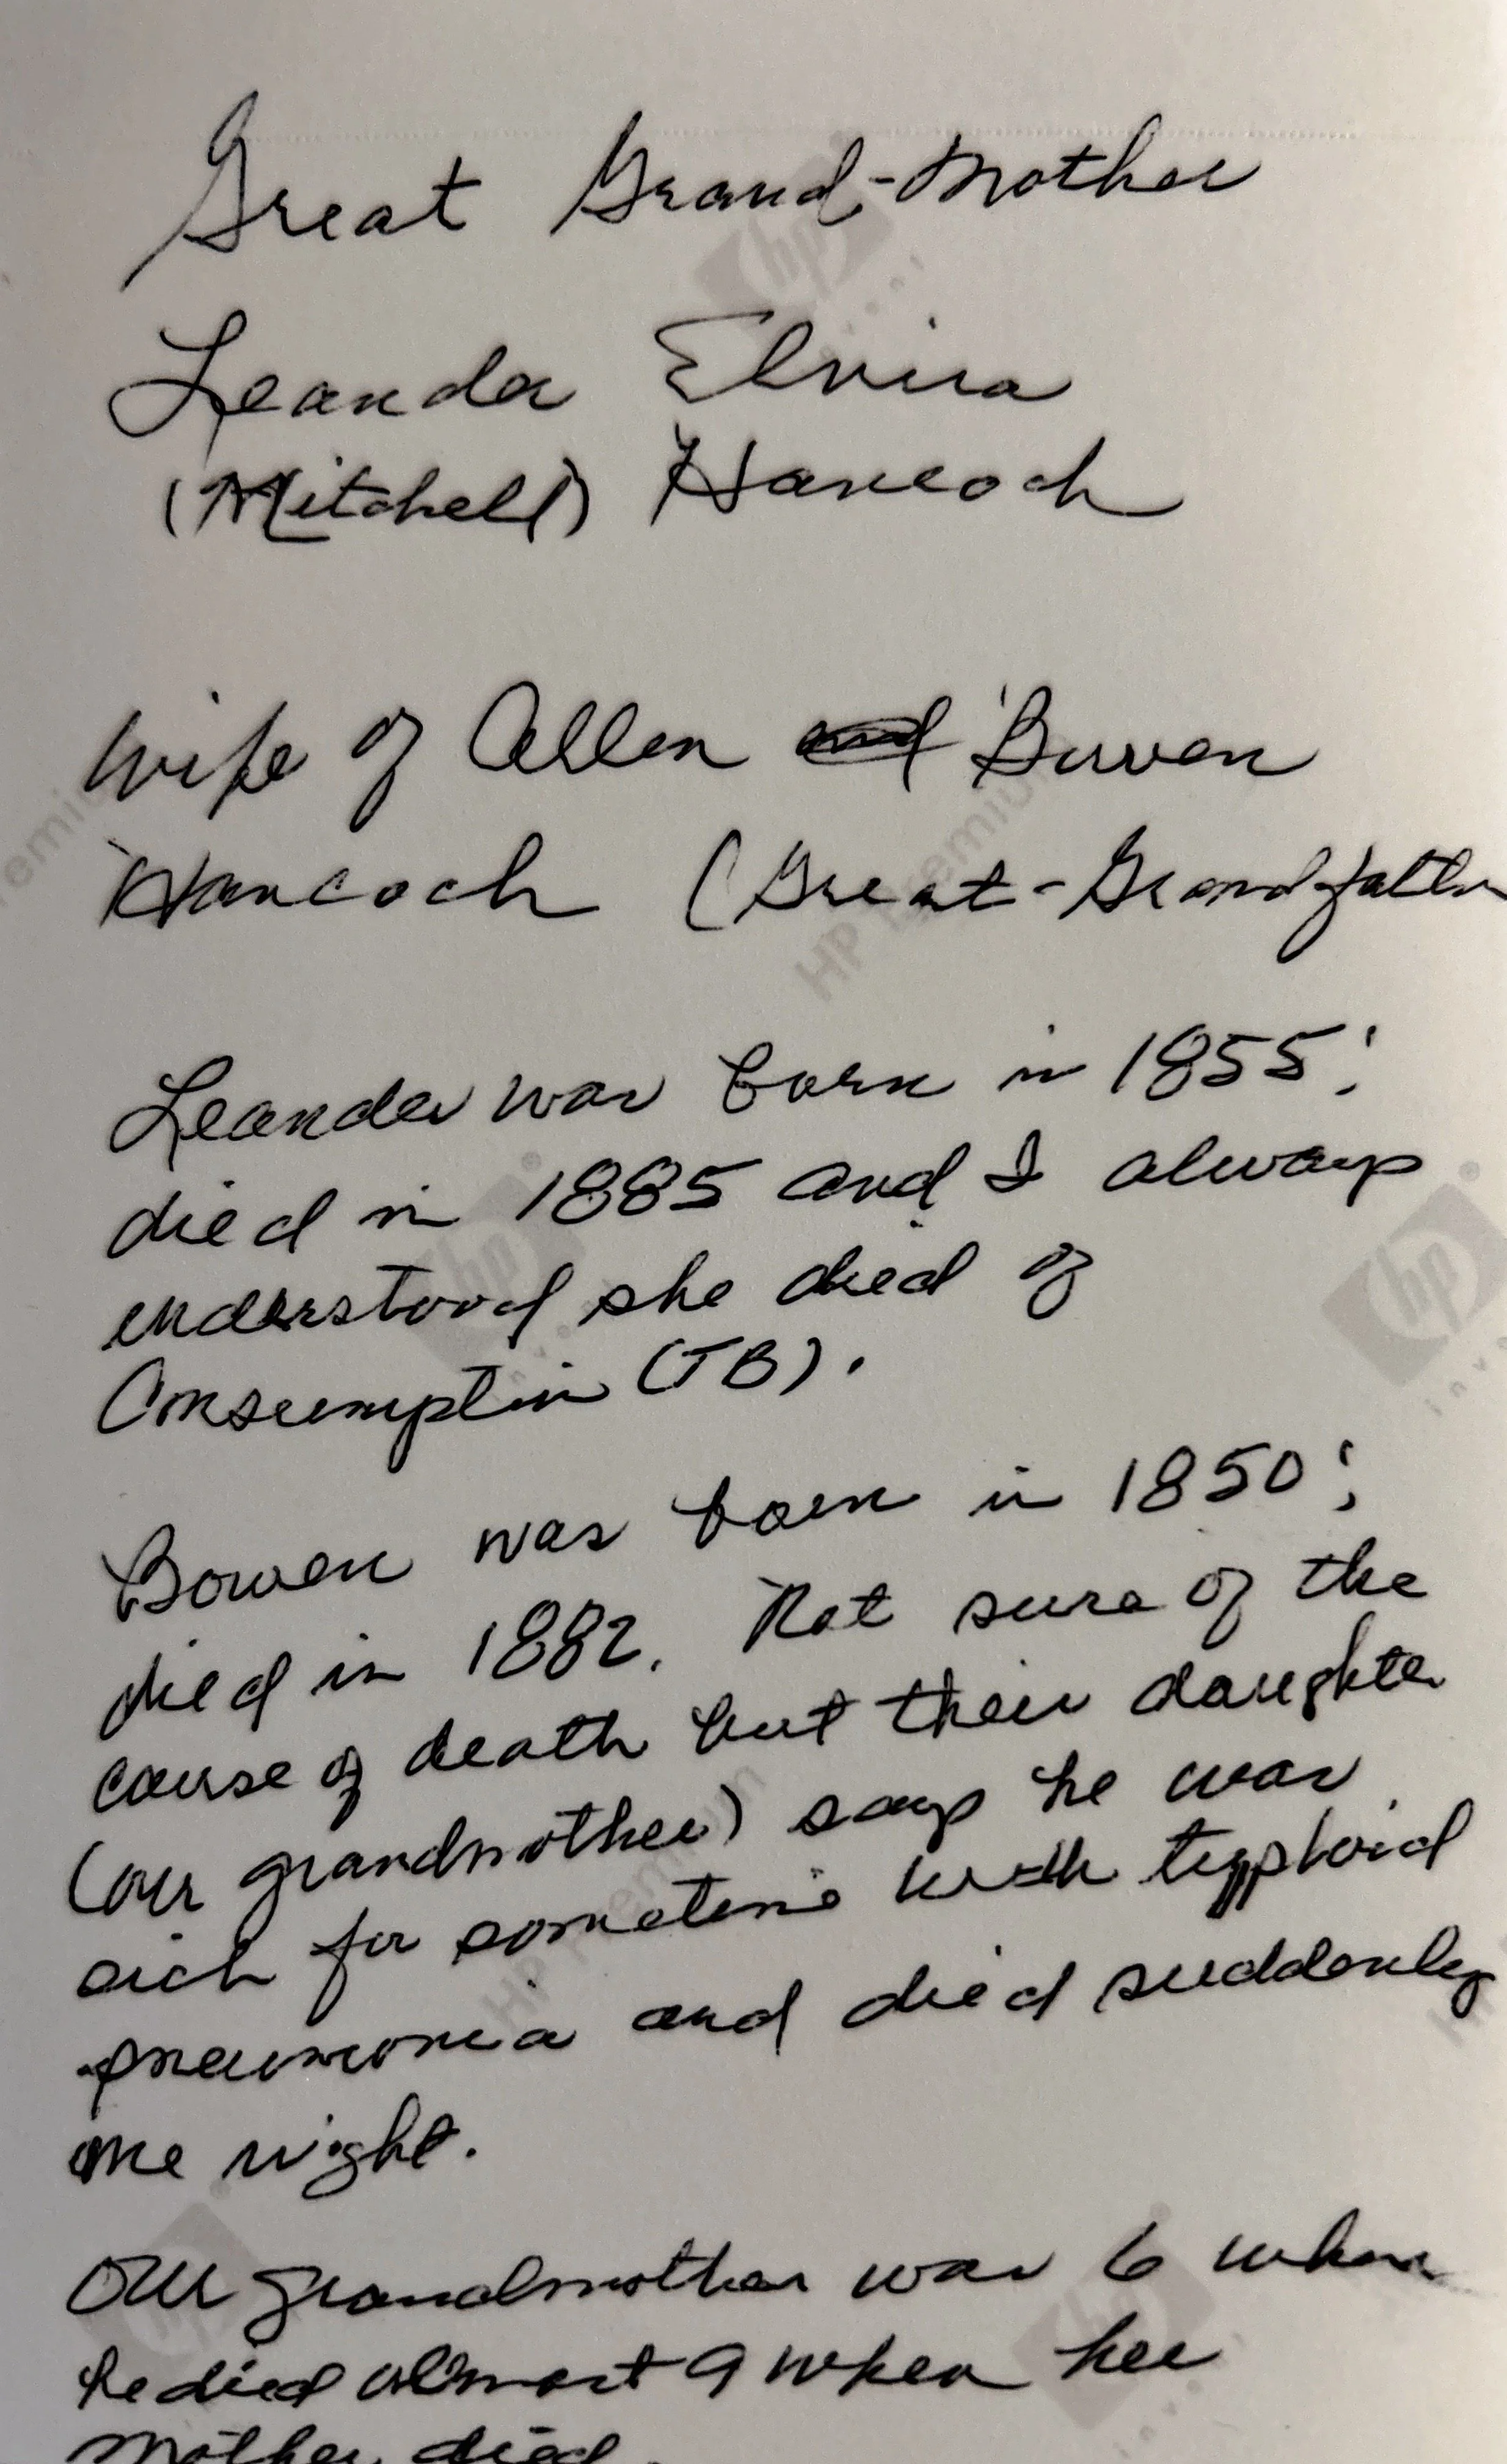 Great Grand-Mother
Leander Elvira
(Mitchell) Hancock
Wife of Allen and Bowen
Hancock (Great-Grandfather
Leander was born in 1855;
died in 1885 and I always
understood she died of
Consumption (TB).
Bowen was born in 1850;
died in 1882. Not sure of the
cause of death but their daughter
(our grandmother) says he was
sick for sometime with typhoid
pneumonia and died suddenly
one night.
Our grandmother was 6 when
he died almost 9 when her
Mother died.